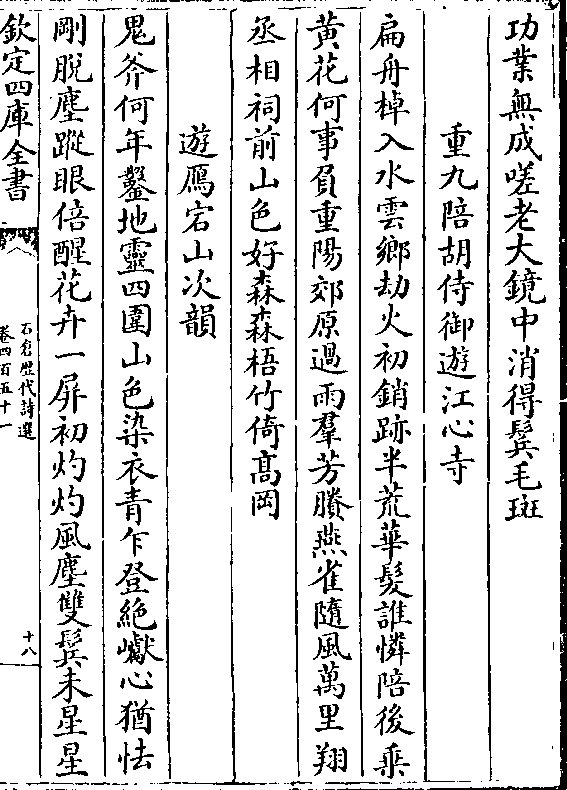 功業無成嗟老大鏡中消得鬂毛斑
重九陪胡侍御遊江心寺
扁舟棹入水雲鄉劫火初銷跡半荒華髮誰憐陪後乗
黄花何事負重陽郊原過雨羣芳賸燕雀隨風萬里翔
丞相祠前山色好森森梧竹倚髙岡
遊鴈宕山次韻
鬼斧何年鑿地靈四圍山色染衣青乍登絶巘心猶怯
剛脫塵蹤眼倍醒花卉一屏初灼灼風塵雙鬂未星星
欽定四庫全書
石倉歴代詩選
卷四百五十一
十八